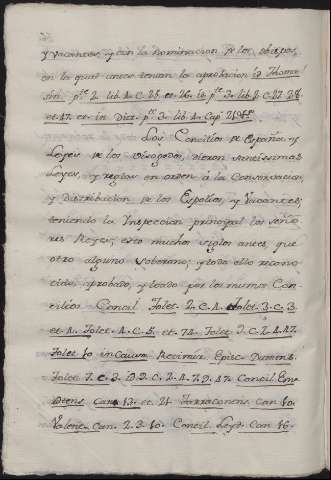 y vacantes, y con la Nominacion de los obispos,
en la qual antes tenian la aprobacion
lib. 1. C. 25. et 26. lib. 3. C. 27. 38.
et 47. et in Dict. lib. 1. Cap.
Los Concilios de España, y
Leyes de los Visogodos, dieron Santissimas
Leyes, y reglas en orden à la Conservacion,
y distribucion de los Espolios, y Vacantes;
teniendo la Inspeccion principal los Seño-
res Reyes; esto muchos siglos antes, que
otro alguno Soberano; y todo ello recono-
cido, aprobado, y loado por los mismos Con-
cilios Concil. Tolet. 2. C. 4. Tolet. 3. C. 3.
et 4. Tolet. 4. C. 5. et 74. Tolet. 9. C. 2. 4. 47.
Tolet. 10 in Causa Recimiri Episc. Dumiens.
Tolet. 7. C. 3. 47. Concil. Eme-
ritens. Can. 13. et 21 Tarraconens. Can. 10.
Valent. Can. 2. 3. 10. Concil. Leyd. Can. 16.